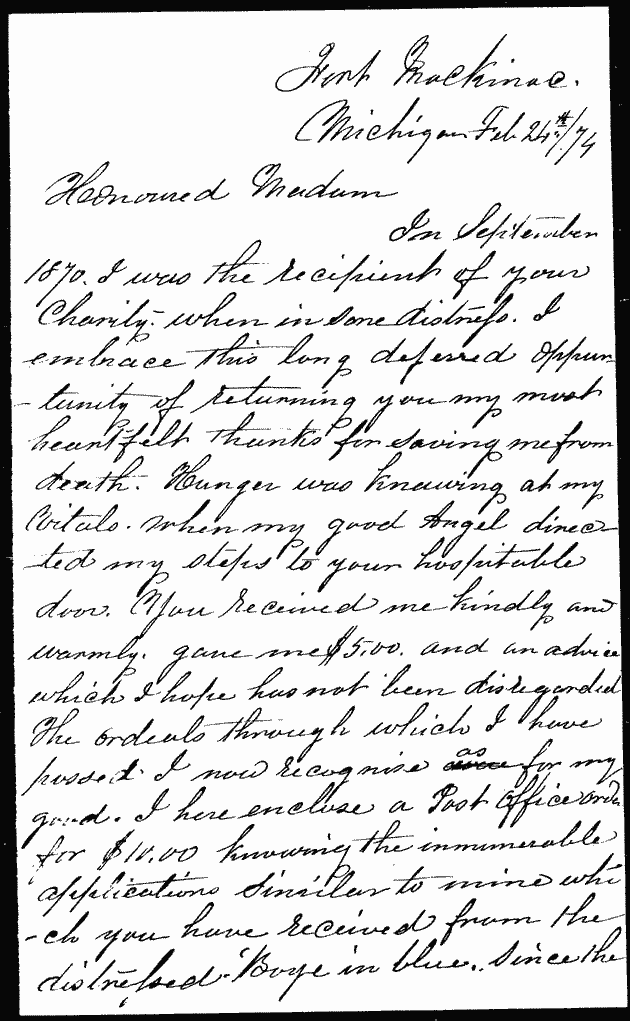 Fort Mackinac.
Michigan Feb 24th/74
Honoured Madam
In September
1870. I was the recipient of your
Charity. when in sore distress. I
embrace this long deferred oppur-
-tunity of returning you my most
heartfelt thanks for saving me from
death. Hunger was knawing at my
Vitals. when my good Angel direc-
-ted my steps to your hospitable
door. You received me kindly and
warmly. gave me $5.00. and an advice
which I hope has not been disregarded
The ordeals through which I have
passed I now recognise as for my
good. I here enclose a Post Office order
for $10.00 knowing the innumerable
applications similar to mine whi
-ch you have received from the
distressed "Boys in blue., since the